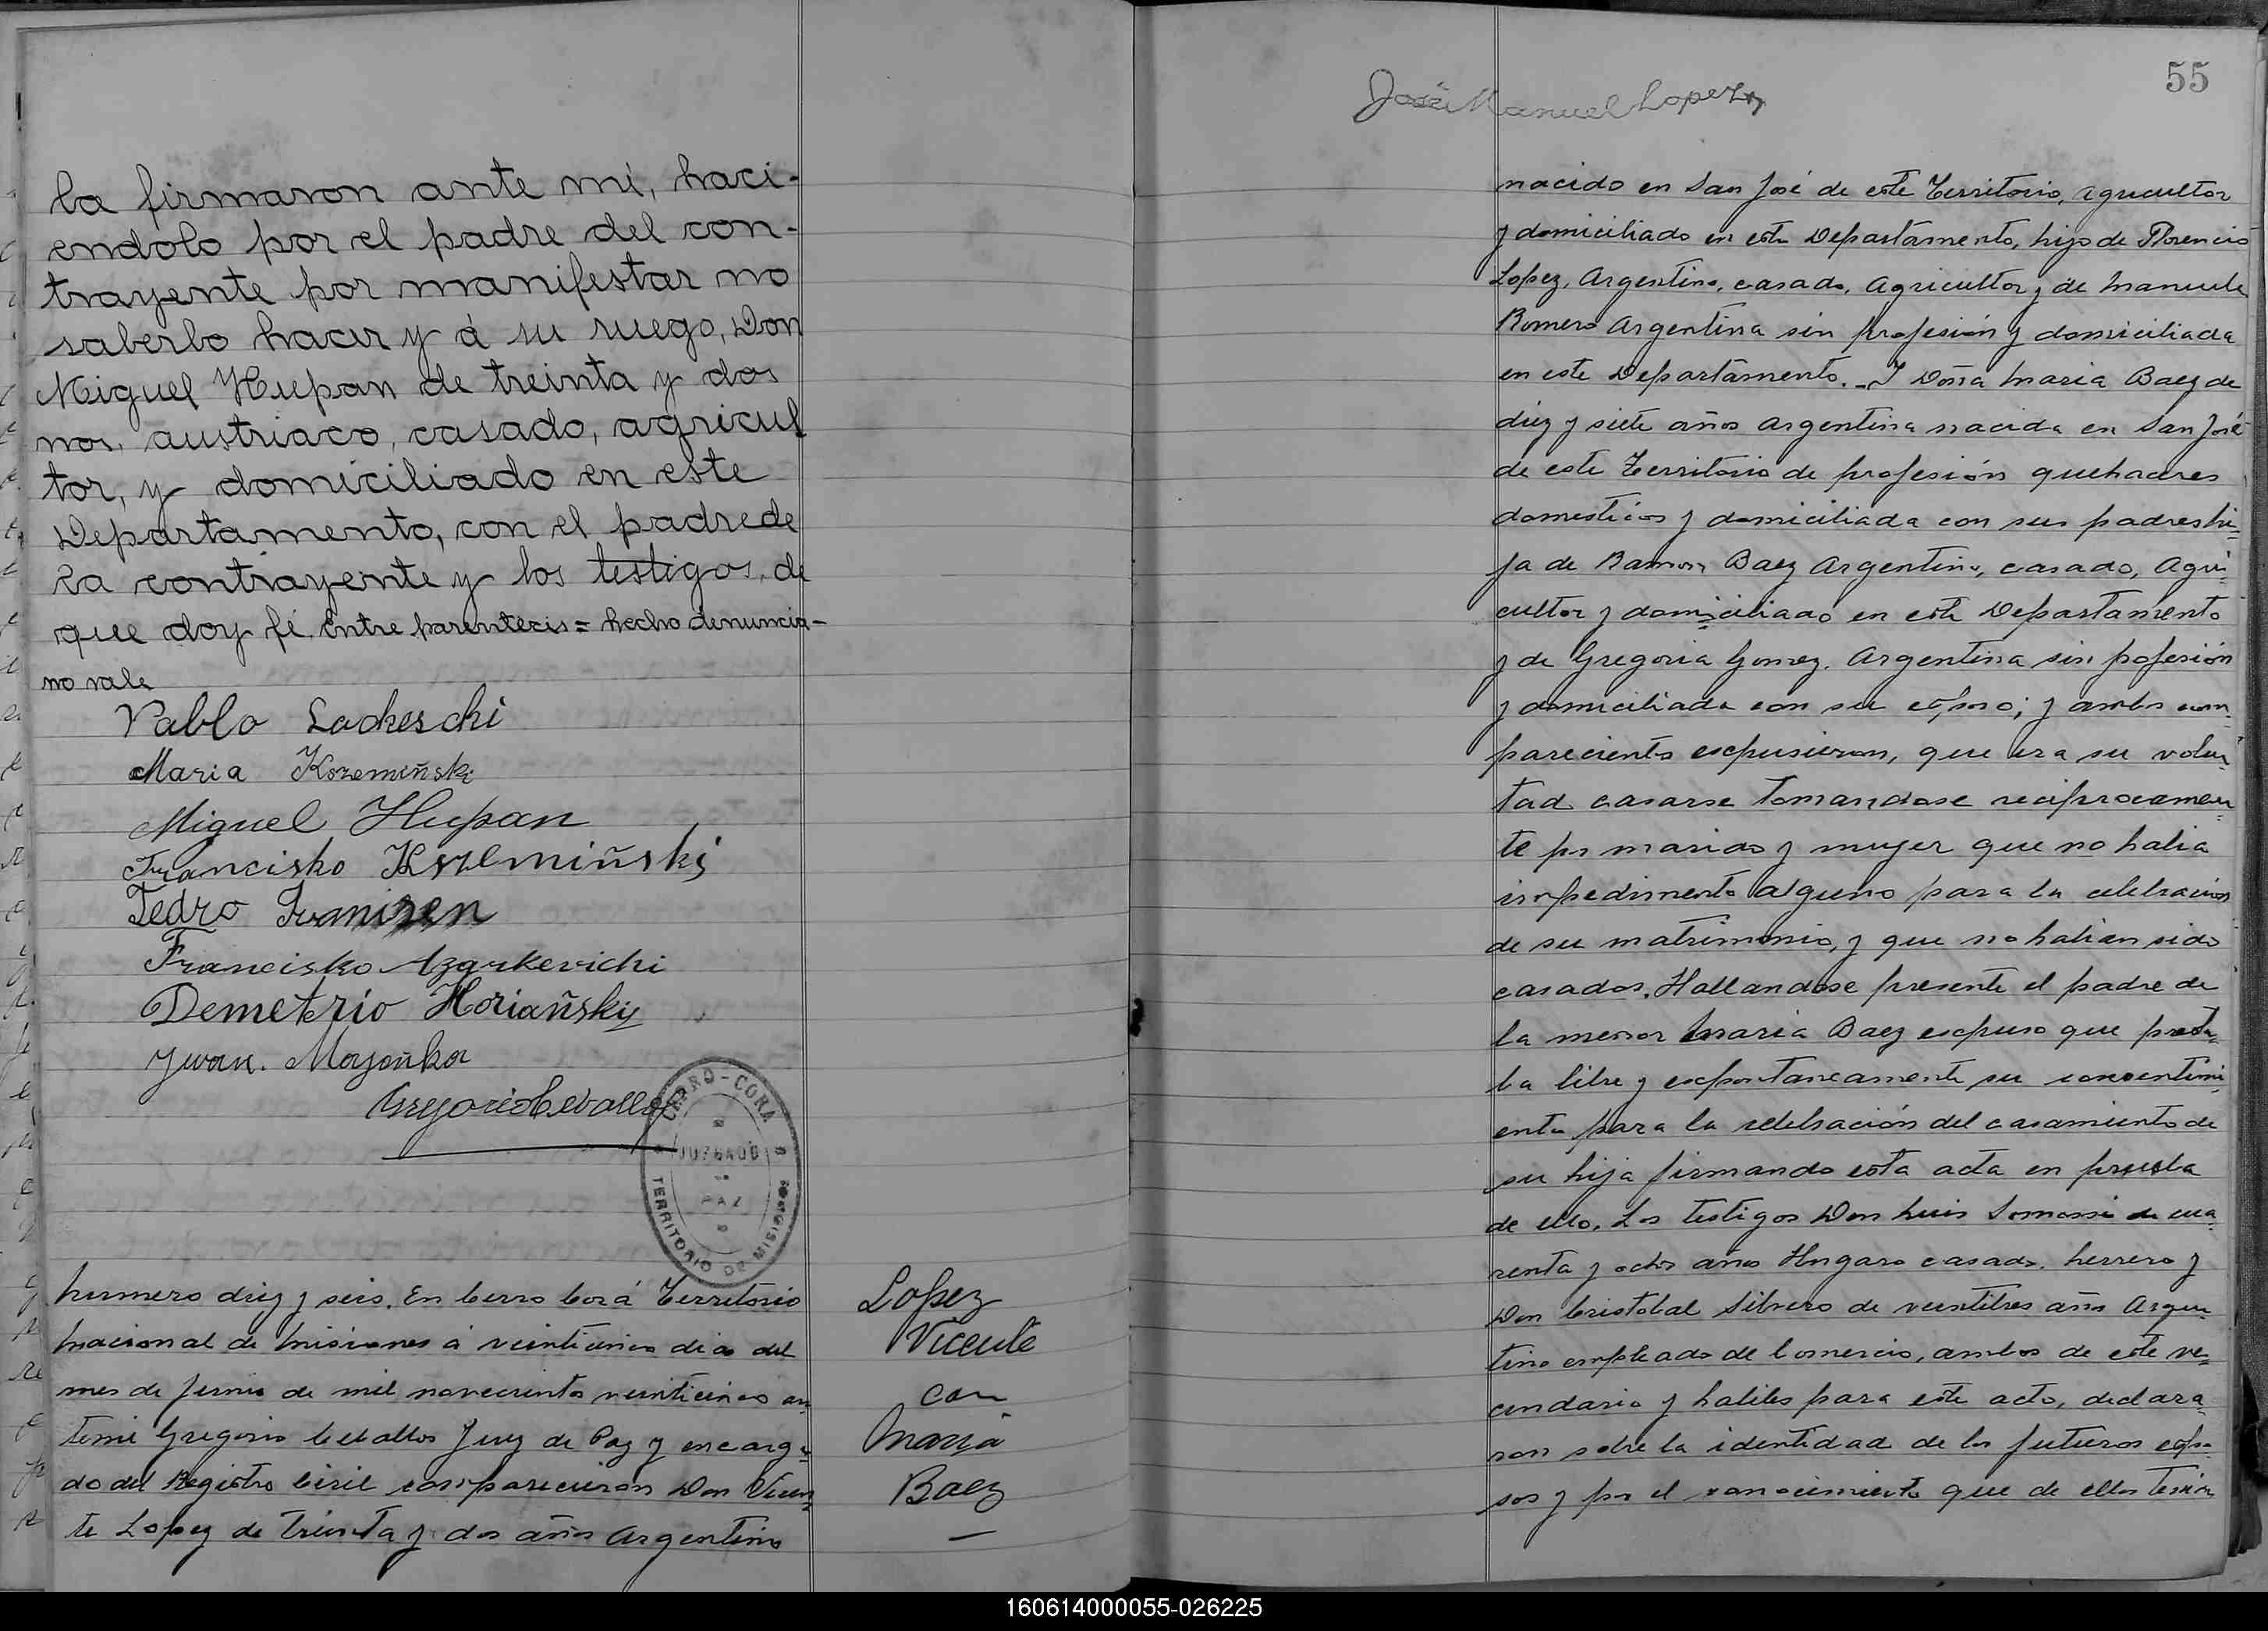 la firmaron ante mi, haci-
endolo por el padre del con-
trayente por manifestar no
saberlo hacer y á su ruego, Don
Miguel Hupan de treinta y dos
nos, austriaco, casado, agricul
tor, y domiciliado en este
Departamento, con el padre de
la contrayente y los testigos, de
que doy fé. Entre parentecis = hecho denuncia-
no vale
Pablo Ladheschi
Maria Kozemiñski
Miguel Hupan
Francisko Kszemiñski
Pedro
Francisko Azarkevichi
Demetrio Horiañskiy
Juan. Mayeñka
Gregorio Cevallos
CERRO-CORA
JUZGADO
DE
PAZ
TERRITORIO DE MISIONES
Numero diez y seis. En Cerro Corá Territorio
Nacional de Misiones á veinticinco dias del
mes de Junio de mil novecientos veinticinco an
te mi Gregorio Cevallos Juez de Paz y encarga-
do del Registro Civil comparecieron Don Vicen-
te Lopez de treinta y dos años Argentino
Lopez
Vicente
con
Maria
Baez
—
55
José Manuel Lopez
nacido en San José de este Territorio, agricultor
y domiciliado en este Departamento, hijo de Florencio
Lopez, Argentino, casado, Agricultor y de Manuela
Romero Argentina sin profesión y domiciliada
en este Departamento. - Y Doña Maria Baez de
diez y siete años argentina nacida en San José
de este Territorio de profesión quehaceres
domesticos y domiciliada con sus padres hi-
ja de Ramon Baez Argentino, casado, Agri-
cultor y domiciliado en este Departamento
y de Gregoria Gomez. Argentina sin pofesión
y domiciliada con su esposo; y ambos com-
parecientes expusieron, que era su volun-
tad casarse tomandose reciprocamen-
te por marido y mujer que no habia
impedimento alguno para la celebracion
de su matrimonio, y que no habian sido
casados. Hallandose presente el padre de
la menor Maria Baez expuso que presta-
ba libre y expontaneamente su consentimi-
ento para la celebración del casamiento de
su hija firmando esta acta en prueba
de ello. Los testigos Don Luis Somossi de cua-
renta y ocho años Hngaro casado, herrero y
Don Cristobal Silvero de veintitres años Argen-
tino empleado de Comercio, ambos de este ve-
cindario y habiles para este acto, declara-
ron sobre la identidad de los futuros espo-
sos y por el conocimiento que de ellos tenian
160614000055-026225